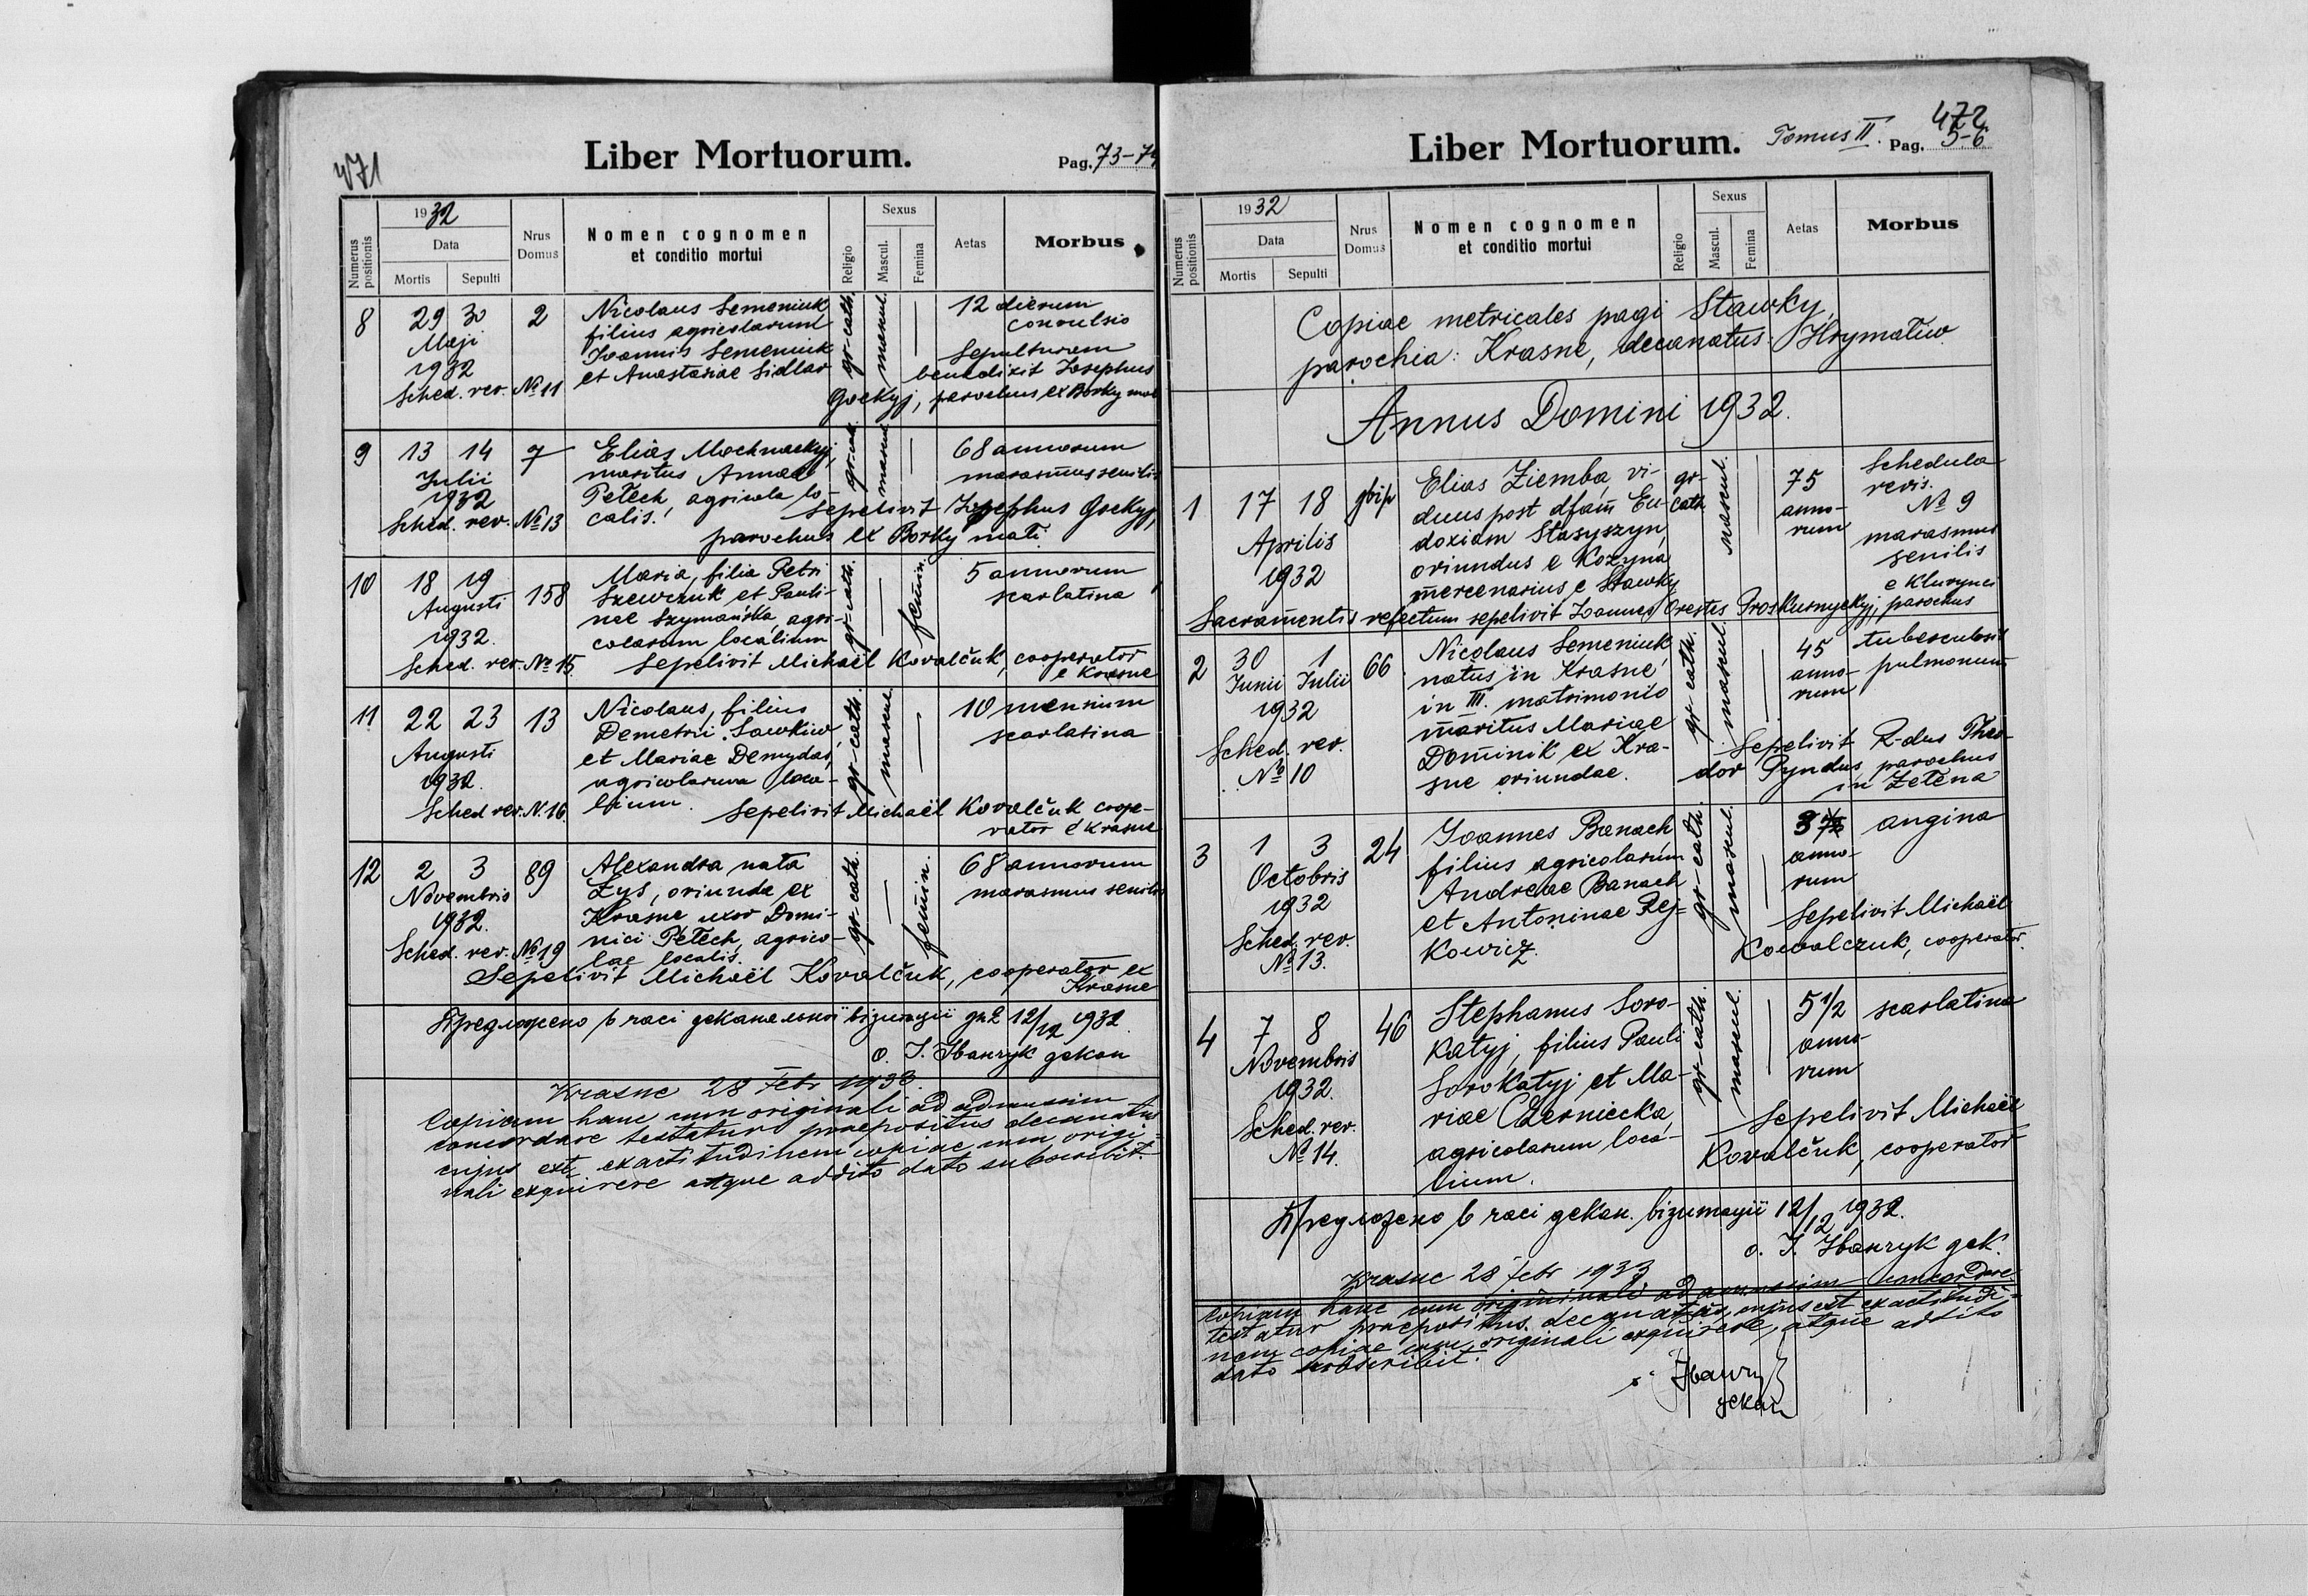 471
Liber Mortuorum.
Pag. 73-74
Numerus positionis
1932
Data
Mortis
Sepulti
Nrus Domus
Nomen cognomen
et conditio mortui
Religio
Sexus
Mascul.
Femina
Aetas
Morbus
8 29 30 2 Nicolaus Semeniuk gr-cath. mascul. — 12 dierum
Maji filius agricolarum convulsio
1932 Joannis Semeniuk Sepulturam
Sched. rev. № 11 et Anastasiae Sidlar benedixit Josephus
Gockyj, parochus ex Borky mali
9 13 14 7 Elias Mochnackyj, gr-cath. mascul. — 68 annorum
Julii maritus Annae marasmus senilis
1932 Petech, agricola lo-
Sched. rev. № 13 calis. Sepelivit Josephus Gockyj,
parochus ex Borky mali.
10 18 19 158 Maria, filia Petri gr-cath. — femin. 5 annorum
Augusti Szewczuk et Pauli- scarlatina
1932. nae Szymańska, agri-
colarum localium
Sched. rev. № 15. Sepelivit Michaël Kovalčuk, cooperator
e Krasne
11 22 23 13 Nicolaus, filius gr-cath. mascul. — 10 mensium
Augusti Demetrii Sawkiw scarlatina
1932. et Mariae Demydas,
agricolarum loca-
Sched rev. N. 16. lium. Sepelivit Michaël Kovalčuk coope-
rator e Krasne
12 2 3 89 Alexandra nata gr-cath. — femin. 68 annorum
Novembris Zys, oriunda ex marasmus senilis
1932. Krasne uxor Domi-
Sched. rev. № 19 nici Petech, agrico-
lae localis.
Sepelivit Michaël Kovalčuk, cooperator ex
Krasne
Предложено в часі деканальної візитації дн. 12/12 1932.
о. І. Іванчук декан
Krasne 28 Febr 1933.
Copiam hanc cum originali ad admussim
concordare testatur praepositus decanatus
cujus est exactitudinem copiae cum origi-
nali exquirere atque addito dato subscribit.
472
Liber Mortuorum. Tomus II. Pag. 5-6
Numerus positionis
1932
Data
Mortis
Sepulti
Nrus Domus
Nomen cognomen
et conditio mortui
Religio
Sexus
Mascul.
Femina
Aetas
Morbus
Copiae metricales pagi Stawky,
parochia: Krasne, decanatus: Hrymaliw
Annus Domini 1932.
1 17 18 двір Elias Ziemba, vi- gr-cath. mascul. — 75 annorum Schedula
Aprilis duus post dfam Eu- revis.
1932 doxiam Stasyszyn, № 9
oriundus e Kozyna, marasmus
mercenarius e Stawky senilis
e Kluvynci
Sacramentis refectum sepelivit Joannes Orestes Proskurnyckyj, parochus
2 30 1 66 Nicolaus Semeniuk gr-cath. mascul. — 45 annorum tuberculosis
Junii Julii natus in Krasne, pulmonum
1932 in III. matrimonio
Sched. rev. maritus Mariae
№ 10 Dominik ex Kra-
sne oriundae.
Sepelivit R-dus Theo-
dor Pyndus parochus
in Zelena
3 1 3 24 Joannes Banach gr-cath. mascul. — 3 annorum angina
Octobris filius agricolarum
1932 Andreae Banach
Sched. rev. et Antoninae Rej-
№ 13. kowicz.
Sepelivit Michaël
Kowalczuk, cooperator.
4 7 8 46 Stephanus Soro- gr-cath. mascul. — 5 1/2 annorum scarlatina
Novembris katyj, filius Pauli
1932. Sorokatyj et Ma-
Sched. rev. riae Czerniecka,
№ 14. agricolarum loca-
lium.
Sepelivit Michaël
Kovalčuk, cooperator
Предложено в часі декан. візитації 12/12 1932.
о. І. Іванчук дек.
Krasne 28 Febr 1933.
Copiam hanc cum originali ad amussim concordare
testatur praepositus decanatus, cujus est exactitudi-
nem copiae cum originali exquirere, atque addito
dato subscribit.
Іванчук
декан